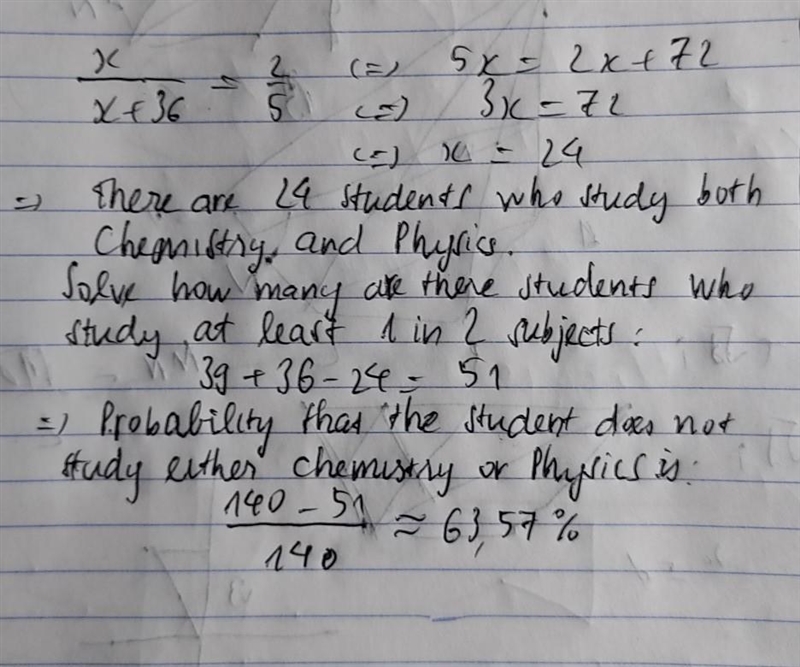 x/(x+36) = 2/5 (=) 5x = 2x + 72
(=) 3x = 72
(=) x = 24
=) There are 24 students who study both
Chemistry, and Physics.
Solve how many are there students who
study at least 1 in 2 subjects:
39 + 36 - 24 = 51
=) Probability that the student does not
study either chemistry or Physics is:
(140 - 51)/140 ≈ 63,57%